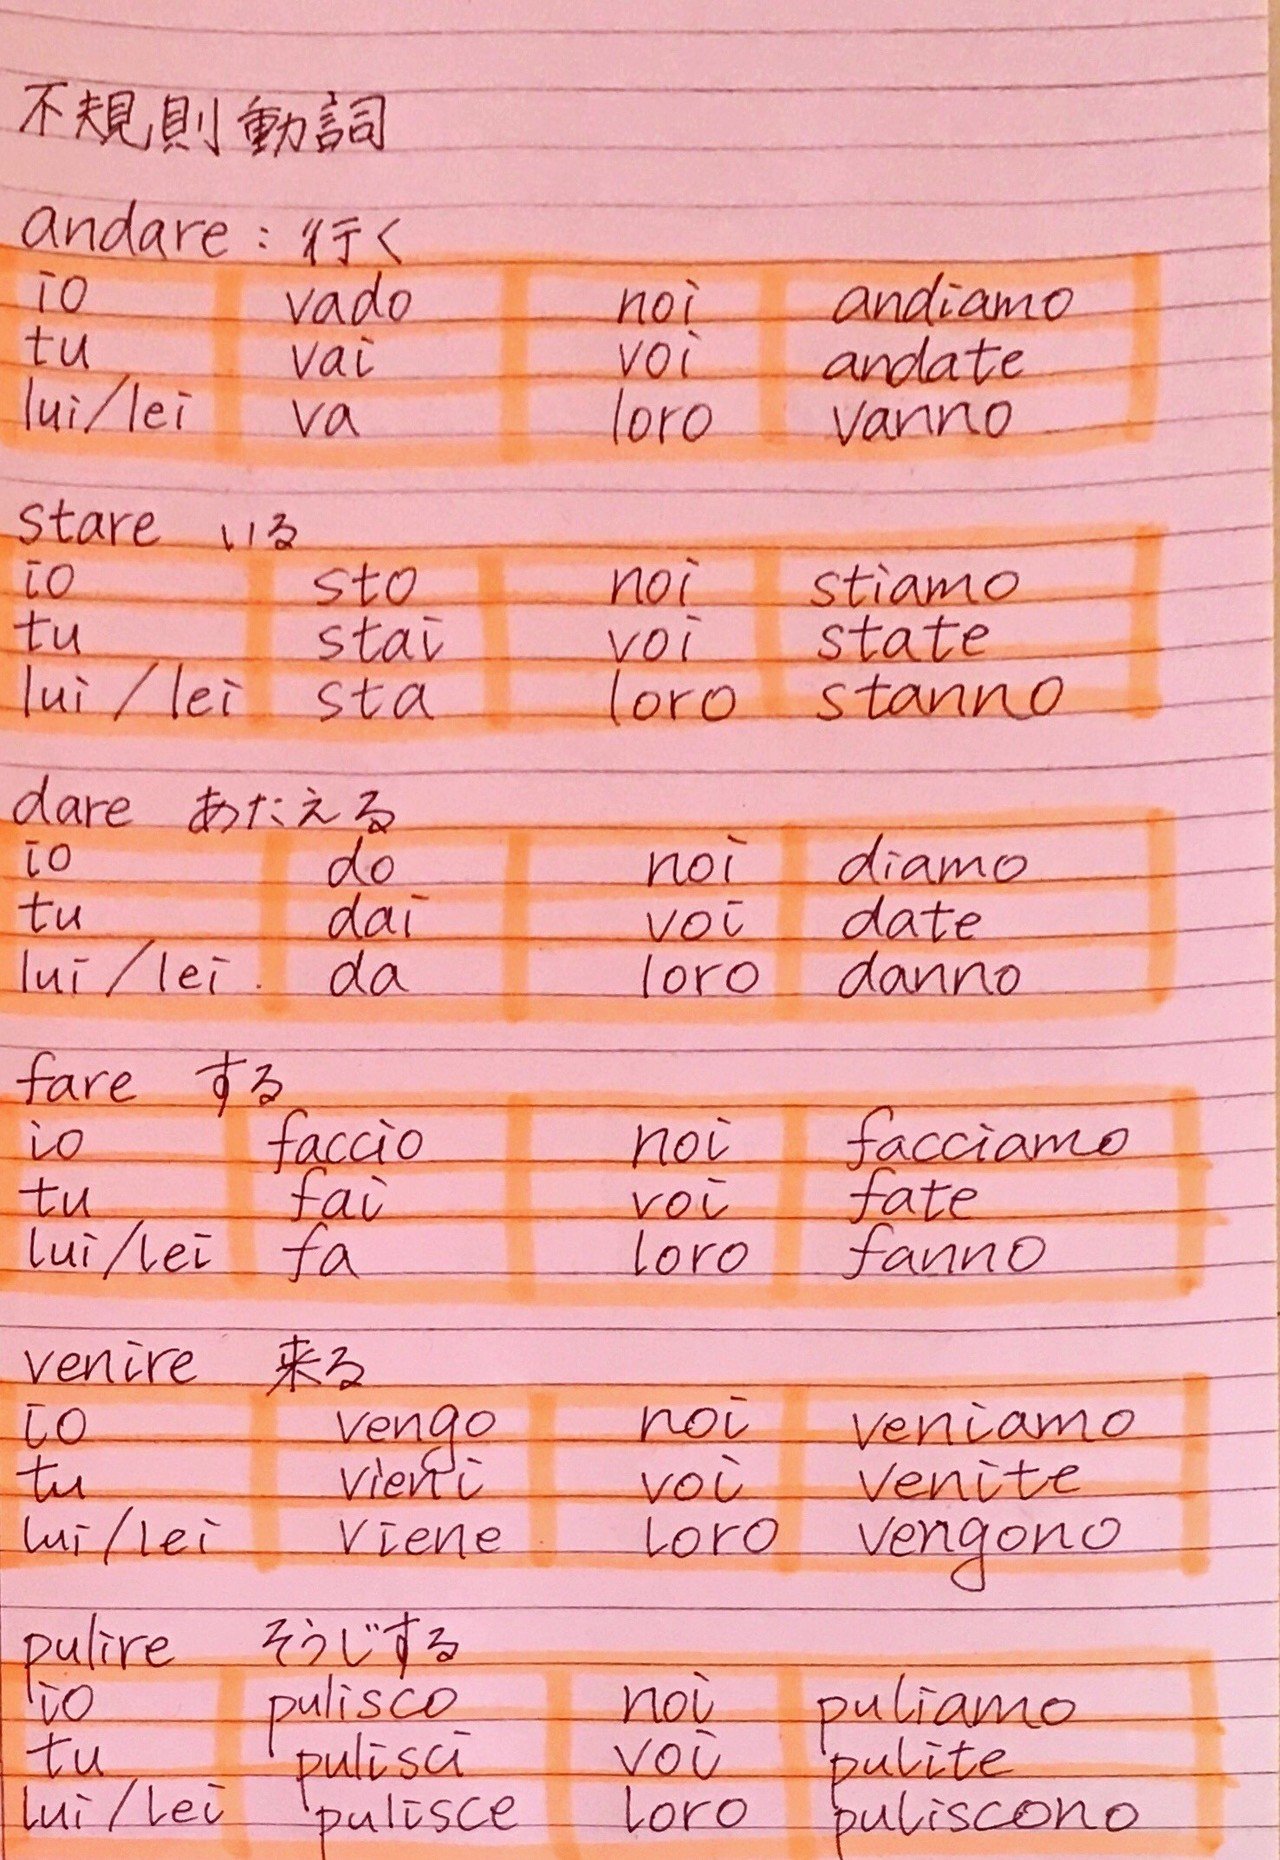 不規則動詞
andare : 行く
io vado noi andiamo
tu vai voi andate
lui/lei va loro vanno
stare いる
io sto noi stiamo
tu stai voi state
lui/lei sta loro stanno
dare あたえる
io do noi diamo
tu dai voi date
lui/lei da loro danno
fare する
io faccio noi facciamo
tu fai voi fate
lui/lei fa loro fanno
venire 来る
io vengo noi veniamo
tu vieni voi venite
lui/lei viene loro vengono
pulire そうじする
io pulisco noi puliamo
tu pulisci voi pulite
lui/lei pulisce loro puliscono